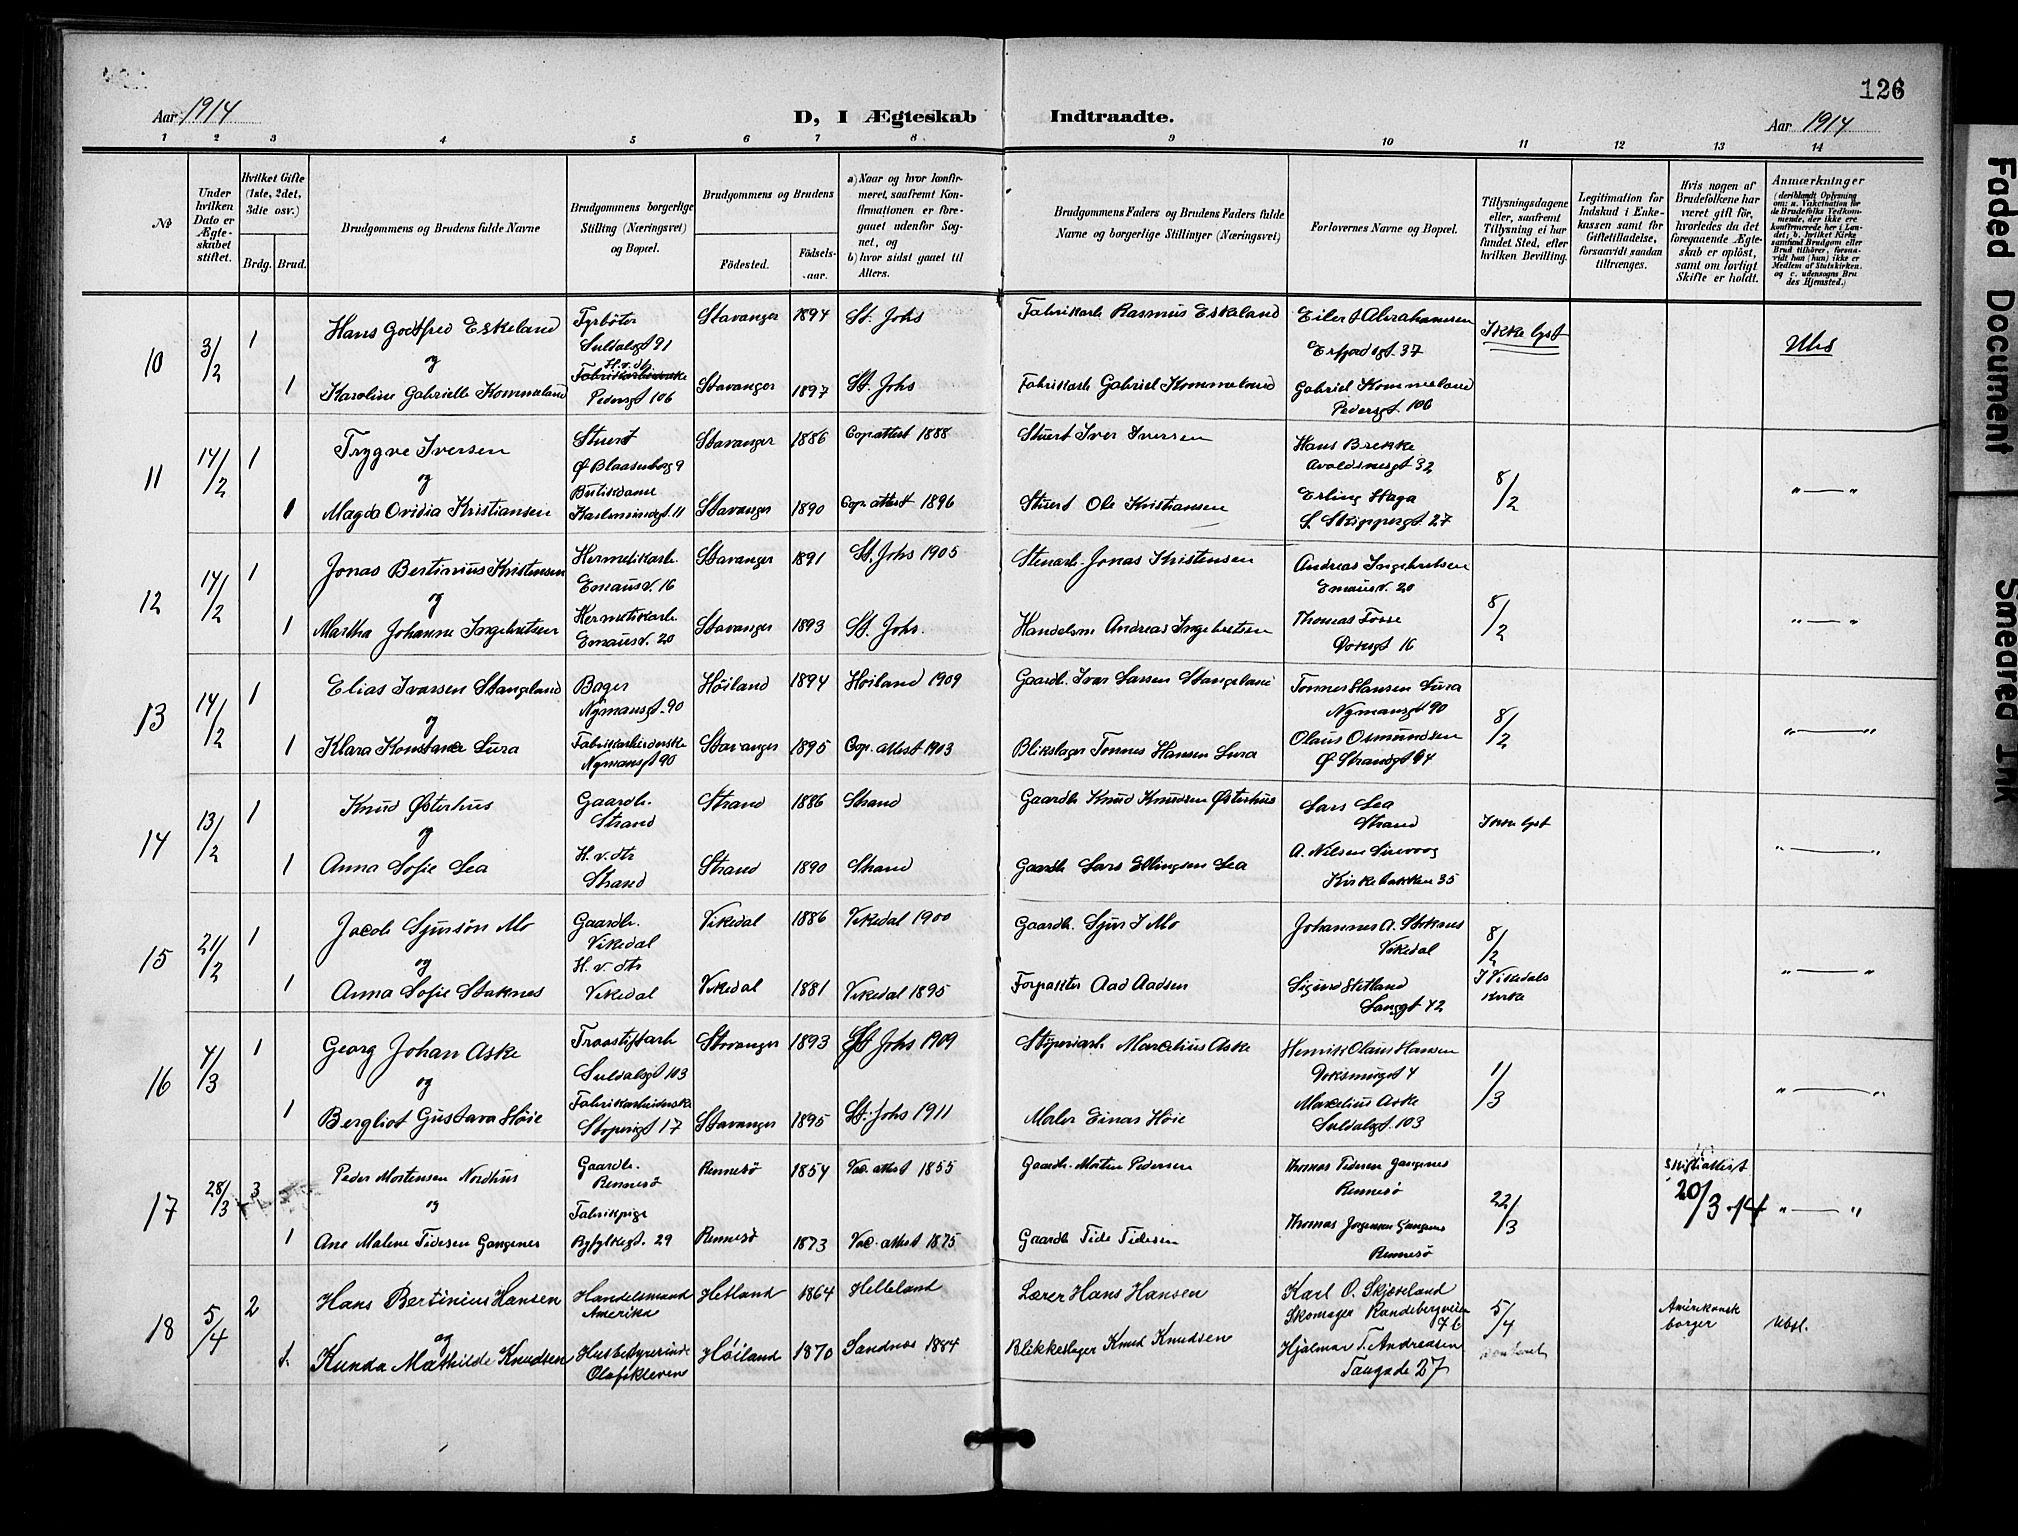 126
Aar 1914
D, I Ægteskab Indtraadte.
Aar 1914
1 2 3 4 5 6 7 8 9 10 11 12 13 14
№
Under hvilken Dato er Ægteskabet stiftet.
Hvilket Gifte (1ste, 2det, 3die osv.)
Brdg. Brud.
Brudgommens og Brudens fulde Navne
Brudgommens borgerlige Stilling (Næringsvei) og Bopæl.
Brudgommens og Brudens
Fødested.
Fødselsaar.
a) Naar og hvor konfirmeret, saafremt Konfirmationen er foregaaet udenfor Sognet, og
b) hvor sidst gaaet til Alters.
Brudgommens Faders og Brudens Faders fulde Navne og borgerlige Stillinger (Næringsvei)
Forlovernes Navne og Bopæl.
Tillysningsdagene eller, saafremt Tillysning ei har fundet Sted, efter hvilken Bevilling.
Legitimation for Indskud i Enkekassen samt for Giftetilladelse, forsaavidt saadan tiltrænges.
Hvis nogen af Brudefolkene har været gift før, hvorledes da det foregaaende Ægteskab er opløst, samt om lovligt Skifte er holdt.
Anmærkninger (deriblandt Oplysning om: a. Vakcination for de Brudefolks Vedkommende, der ikke ere konfirmerede her i Landet, b. hvilket Kirkesamfund Brudgom eller Brud tilhører, forsaavidt han (hun) ikke er Medlem af Statskirken, og c. udensogns Brudes Hjemsted.)
10 3/2 1 Hans Godtfred Eskeland Fyrbøter Suldalsgt 91 Stavanger 1894 St. Johs Fabrikarb Rasmus Eskeland Eilert Abrahamsen Erfjordsgt. 37 Ikke lyst
og
1 Karoline Gabrielle Kommeland H. v. dtr Fabrikarbeiderske Pedersgt 106 Stavanger 1897 St. Johs Fabrikarb Gabriel Kommeland Gabriel Kommeland Pedersgt. 106
11 14/2 1 Trygve Iversen Stuert Ø Blaasenborg 9 Stavanger 1886 Cop. attest 1888 Stuert Iver Iversen Hans Brekke Avaldsnesgt 32 8/2 " — "
og
1 Magda Ovidia Kristiansen Butikdame Karlsminnegt 11 Stavanger 1890 Cop. attest 1896 Stuert Ole Kristiansen Erling Haga S. Skippergt 27
12 14/2 1 Jonas Bertinius Kristensen Hermetikarb. Emausv. 16 Stavanger 1891 St. Johs 1905 Stenarb. Jonas Kristensen Andreas Ingebretsen Emausv. 20 8/2 " — "
og
1 Martha Johanne Ingebretsen Hermetikarb. Emausv. 20 Stavanger 1893 St. Johs. Handelsm Andreas Ingebretsen Thomas Fosse Doksgt 16
13 14/2 1 Elias Ivarsen Stangeland Bager Nymansgt. 90 Høiland 1894 Høiland 1909 Gaardb. Ivar Larsen Stangeland Tønnes Hansen Lura Nymansgt 90 8/2 " — "
og
1 Klara Konstanse Lura Fabrikarbeiderske Nymansgt 90 Stavanger 1895 Cop. attest 1903 Blikslager Tønnes Hansen Lura Olaus Osmundsen Ø Strandgt 64
14 13/2 1 Knud Østerhus Gaardb. Strand Strand 1886 Strand Gaardb Knud Knudsen Østerhus Lars Lea Strand Ikke lyst " — "
og
1 Anna Sofie Lea H. v. dtr Strand Strand 1890 Strand Gaardb Lars Ellingsen Lea A. Nilsen Sirevaag Kirkebakken 35
15 21/2 1 Jacob Sjursøn Mo Gaardb. Vikedal Vikedal 1886 Vikedal 1900 Gaardb. Sjur I Mo Johannes A. Stoknes Vikedal 8/2 " — "
og
1 Anna Sofie Staknes H. v. dtr Vikedal Vikedal 1881 Vikedal 1895 Forpagter Aad Aadsen Sigurd Hetland Langgt 42 I Vikedals Kirke
16 4/3 1 Georg Johan Aske Suldalsgt 103 Stavanger 1893 St Johs 1909 Støperiarb Marcelius Aske Henrik Olaus Hansen 1/3 " — "
og
1 Bergliot Gustava Høie Fabrikarbeiderske Støperigt 17 Stavanger 1895 St. Johs 1911 Maler Einar Høie Marcelius Aske Suldalsgt. 103
17 28/3 3 Peder Mortensen Nordhus Gaardb. Rennesø Rennesø 1854 Vac. attest 1855 Gaardb. Morten Pedersen Thomas Tidesen Gangenes Rennesø 22/3 Skifteattest 20/3 .14 " — "
og
1 Ane Malene Tidesen Gangenes Fabrikpige Ryfylkegt. 29 Rennesø 1873 Vac. attest 1875 Gaardb Tide Tidesen Thomas Jørgensen Gangenes Rennesø
18 5/4 2 Hans Bertinius Hansen Handelsmand Amerika Hetland 1864 Helleland Lærer Hans Hansen Karl O. Skjæveland Skomager Randebergveien 76 5/4 Amerikansk borger
og
1. Kunda Mathilde Knudsen Husbestyrerinde Olafskleven Høiland 1870 Sandnes 1884 Blikkeslager Knud Knudsen Hjalmar T. Andreasen Langade 27
Faded Document
Smeared Ink